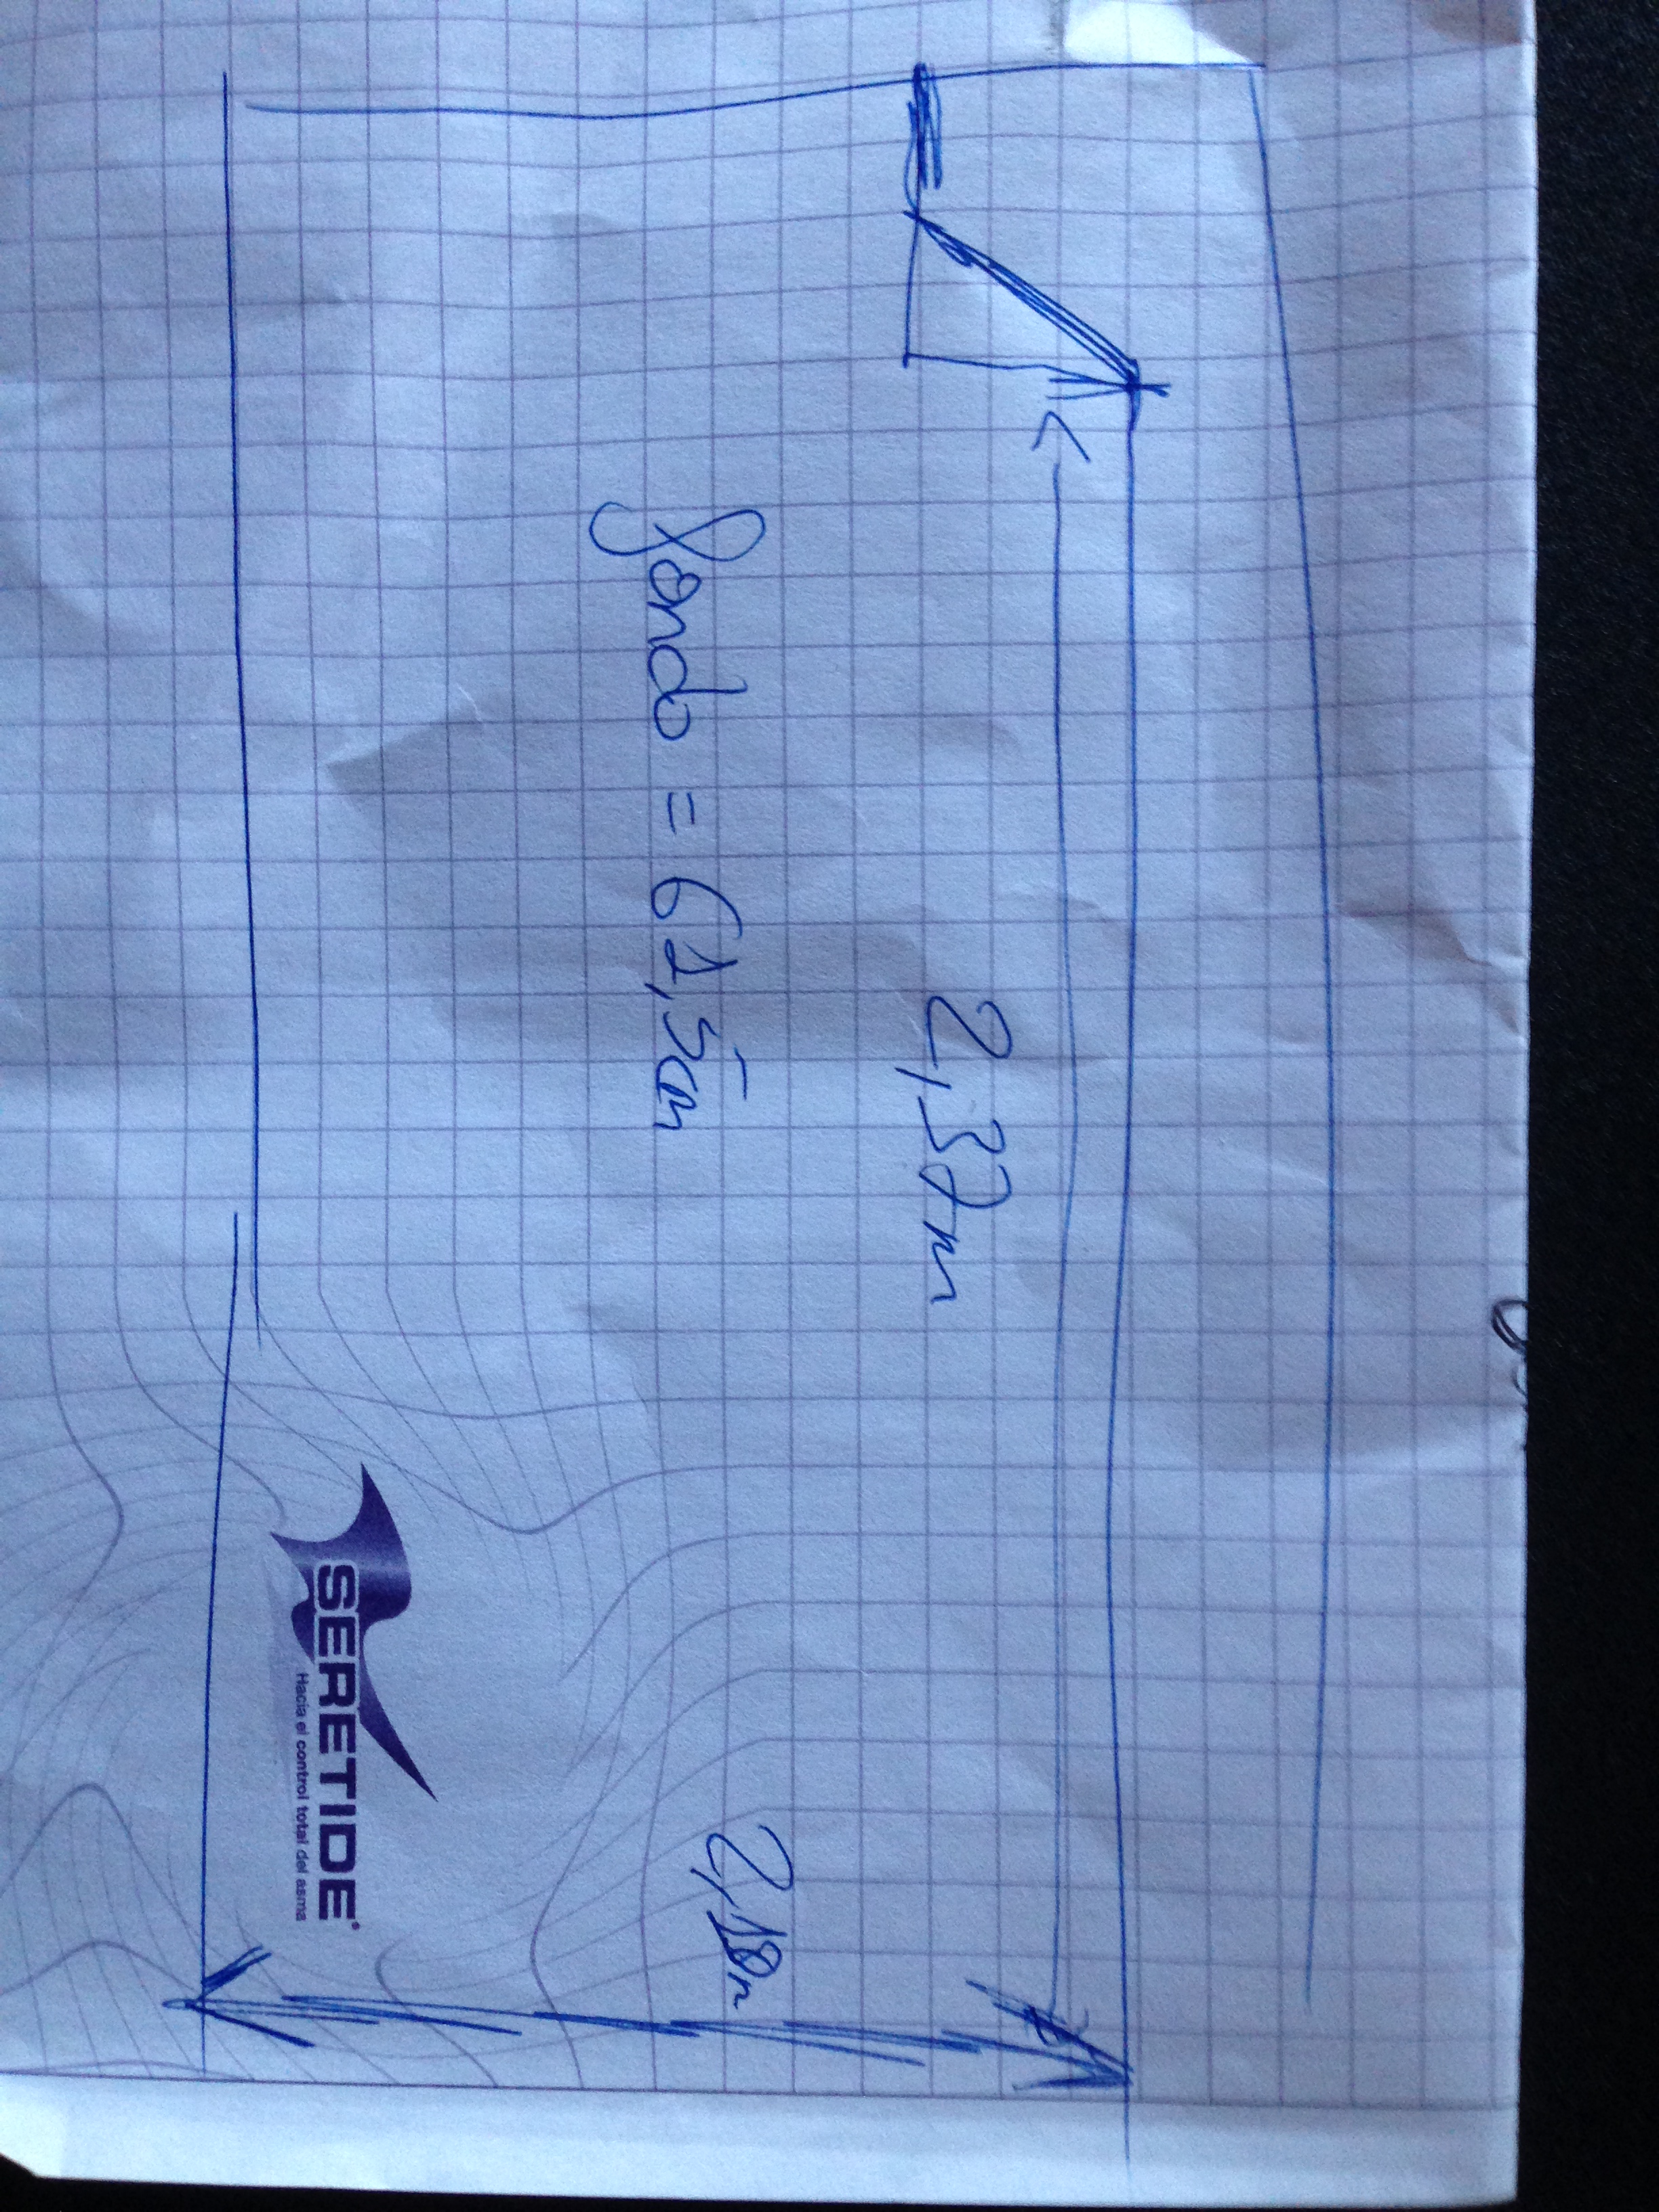 2,37m
fondo = 61,5cm
2,18m
SERETIDE®
Hacia el control total del asma